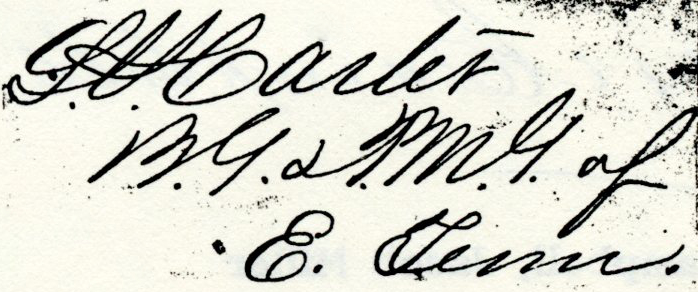 S. P. Carter
B. G. & P. M. G. of
E. Tenn.